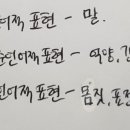 어적 표현 - 말.
언어적 표현 - 억양,
언어적 표현 - 몸짓, 표정